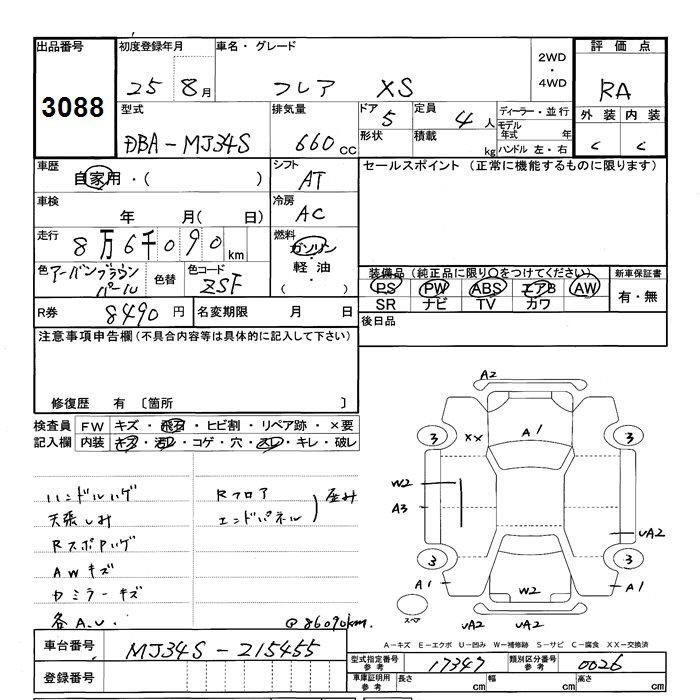 出品番号 初度登録年月 車名・グレード 2WD・4WD 評価点
3088 25 8月 フレア XS RA
型式 排気量 ドア 5 定員 4人 ディーラー・並行 外装 内装
DBA-MJ34S 660cc 形状 積載 kg モデル年式 年 ハンドル 左・右 C C
車歴 自家用・( ) シフト AT セールスポイント (正常に機能するものに限ります)
車検 年 月( 日) 冷房 AC
走行 8万6千090km 燃料 ガソリン・軽油・( )
色 アーバンブラウンパール 色替 色コード ZSF
装備品 (純正品に限り○をつけてください) 新車保証書
PS PW ABS エアB AW 有・無
SR ナビ TV カワ
R券 8490円 名変期限 月 日 後日品
注意事項申告欄(不具合内容等は具体的に記入して下さい)
修復歴 有 〔箇所 〕
検査員 FW キズ・飛石・ヒビ割・リペア跡・×要
記入欄 内装 キズ・汚レ・コゲ・穴・スレ・キレ・破レ
ハンドルハゲ Rフロア
天張しみ エンドパネル 歪み
RスポPハゲ
AWキズ
カミラーキズ
各A.U. @86090km
A2
3 XX A1 3
W2
A3 UA2
3 3
A1 W2 A1
スペア UA2 UA2
A-キズ E-エクボ U-凹み W-補修跡 S-サビ C-腐食 XX-交換済
車台番号 MJ34S-215455
型式指定番号 参考 17347 類別区分番号 参考 0026
登録番号 車庫証明用 参考 長さ cm 幅 cm 高さ cm